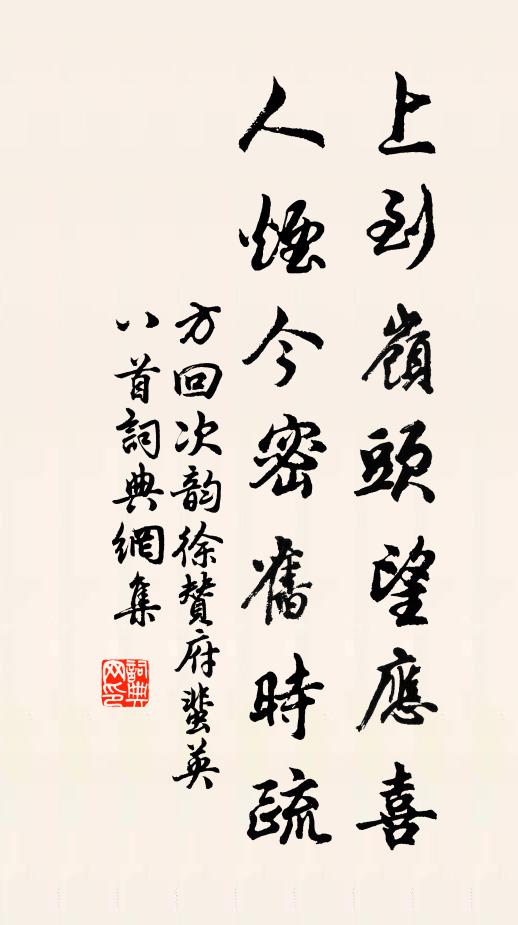 上到嶺頭望應喜
人煙今密舊時疏
方回次韵徐贊府蜚英
八首詞典網集
詞典
网印